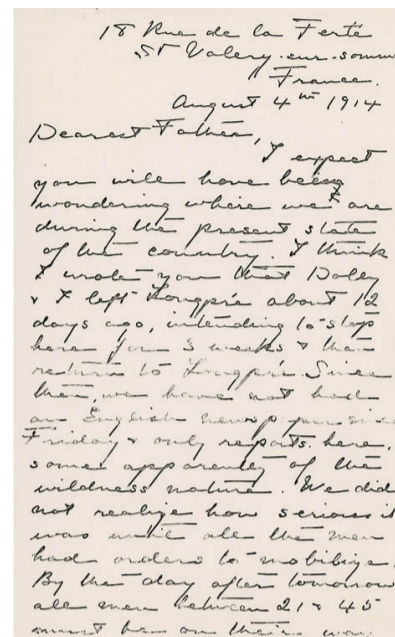 18 Rue de la Ferté
St Valery-sur-somm
France.
August 4th 1914
Dearest Father,
I expect
you will have being
wondering where we are
during the present state
of the country. I think
I wrote you that Dolly
& I left Longpré about 12
days ago, intending to stop
here for 3 weeks & then
return to Longpré. Since
then, we have not had
an English newspaper since
Friday & only reports here,
some apparently of the
wildness nature. We did
not realize how serious it
was until all the men
had orders to mobilize.
By the day after tomorrow
all men between 21 & 45
must be on their way